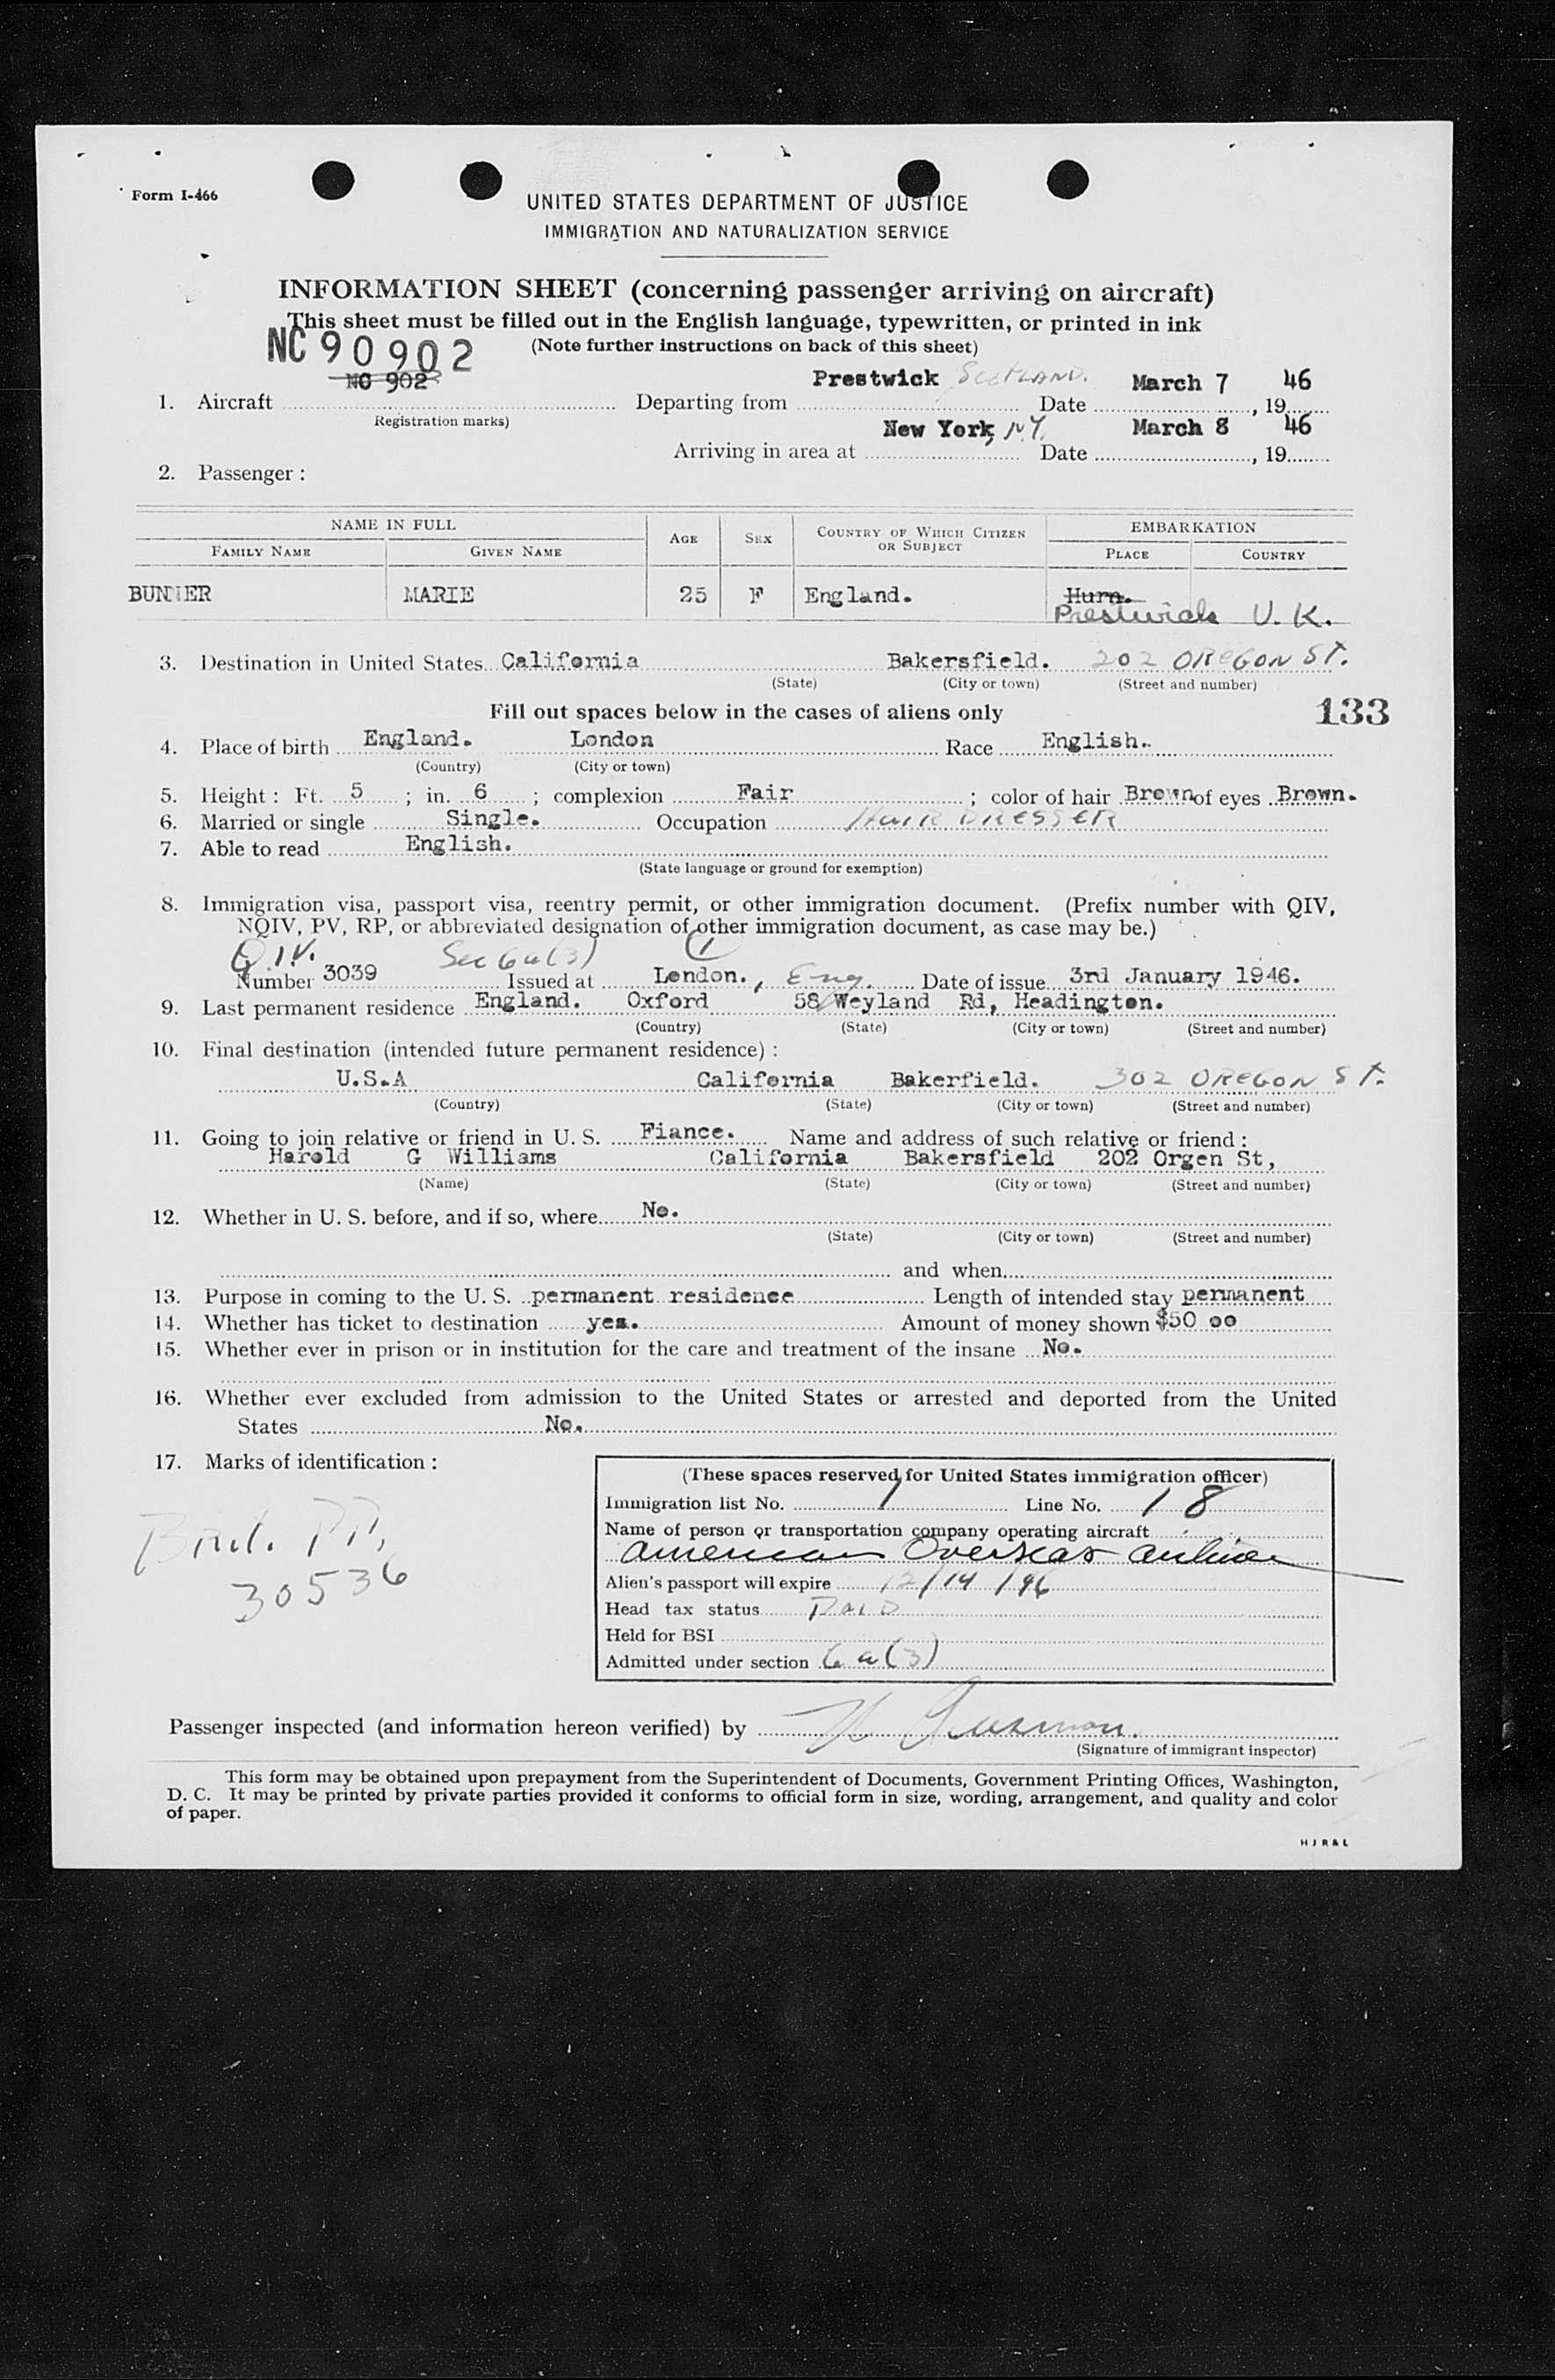 Form I-466
UNITED STATES DEPARTMENT OF JUSTICE
IMMIGRATION AND NATURALIZATION SERVICE
INFORMATION SHEET (concerning passenger arriving on aircraft)
This sheet must be filled out in the English language, typewritten, or printed in ink
(Note further instructions on back of this sheet)
NC 90902
NC 902
1. Aircraft Departing from Prestwick SCOTLAND. Date March 7, 1946
Registration marks)
Arriving in area at New York, N.Y. Date March 8, 1946
2. Passenger :
NAME IN FULL AGE SEX COUNTRY OF WHICH CITIZEN OR SUBJECT EMBARKATION
FAMILY NAME GIVEN NAME PLACE COUNTRY
MARIE 25 F England. Hurn.
Prestwick U.K.
3. Destination in United States California Bakersfield. 202 OREGON ST.
(State) (City or town) (Street and number)
Fill out spaces below in the cases of aliens only
133
4. Place of birth England. London Race English.
(Country) (City or town)
5. Height : Ft. 5 ; in. 6 ; complexion Fair ; color of hair Brown of eyes Brown.
6. Married or single Single. Occupation HAIR DRESSER
7. Able to read English.
(State language or ground for exemption)
8. Immigration visa, passport visa, reentry permit, or other immigration document. (Prefix number with QIV,
NQIV, PV, RP, or abbreviated designation of other immigration document, as case may be.)
Q.I.V. Sec 6a(3)
Number 3039 Issued at London., Eng. Date of issue 3rd January 1946.
9. Last permanent residence England. Oxford 58 Weyland Rd, Headington.
(Country) (State) (City or town) (Street and number)
10. Final destination (intended future permanent residence) :
U.S.A California Bakerfield. 302 OREGON ST.
(Country) (State) (City or town) (Street and number)
11. Going to join relative or friend in U. S. Fiance. Name and address of such relative or friend :
Harold G Williams California Bakersfield 202 Orgen St,
(Name) (State) (City or town) (Street and number)
12. Whether in U. S. before, and if so, where No.
(State) (City or town) (Street and number)
and when
13. Purpose in coming to the U. S. permanent residence Length of intended stay permanent
14. Whether has ticket to destination yes. Amount of money shown $50 00
15. Whether ever in prison or in institution for the care and treatment of the insane No.
16. Whether ever excluded from admission to the United States or arrested and deported from the United
States No.
17. Marks of identification :
Brit. PP.
30536
(These spaces reserved for United States immigration officer)
Immigration list No. 1 Line No. 18
Name of person or transportation company operating aircraft
American Overseas Airlines
Alien's passport will expire 12/14/46
Head tax status PAID
Held for BSI
Admitted under section 6a(3)
Passenger inspected (and information hereon verified) by
(Signature of immigrant inspector)
This form may be obtained upon prepayment from the Superintendent of Documents, Government Printing Offices, Washington,
D. C. It may be printed by private parties provided it conforms to official form in size, wording, arrangement, and quality and color
of paper.
H J R & L